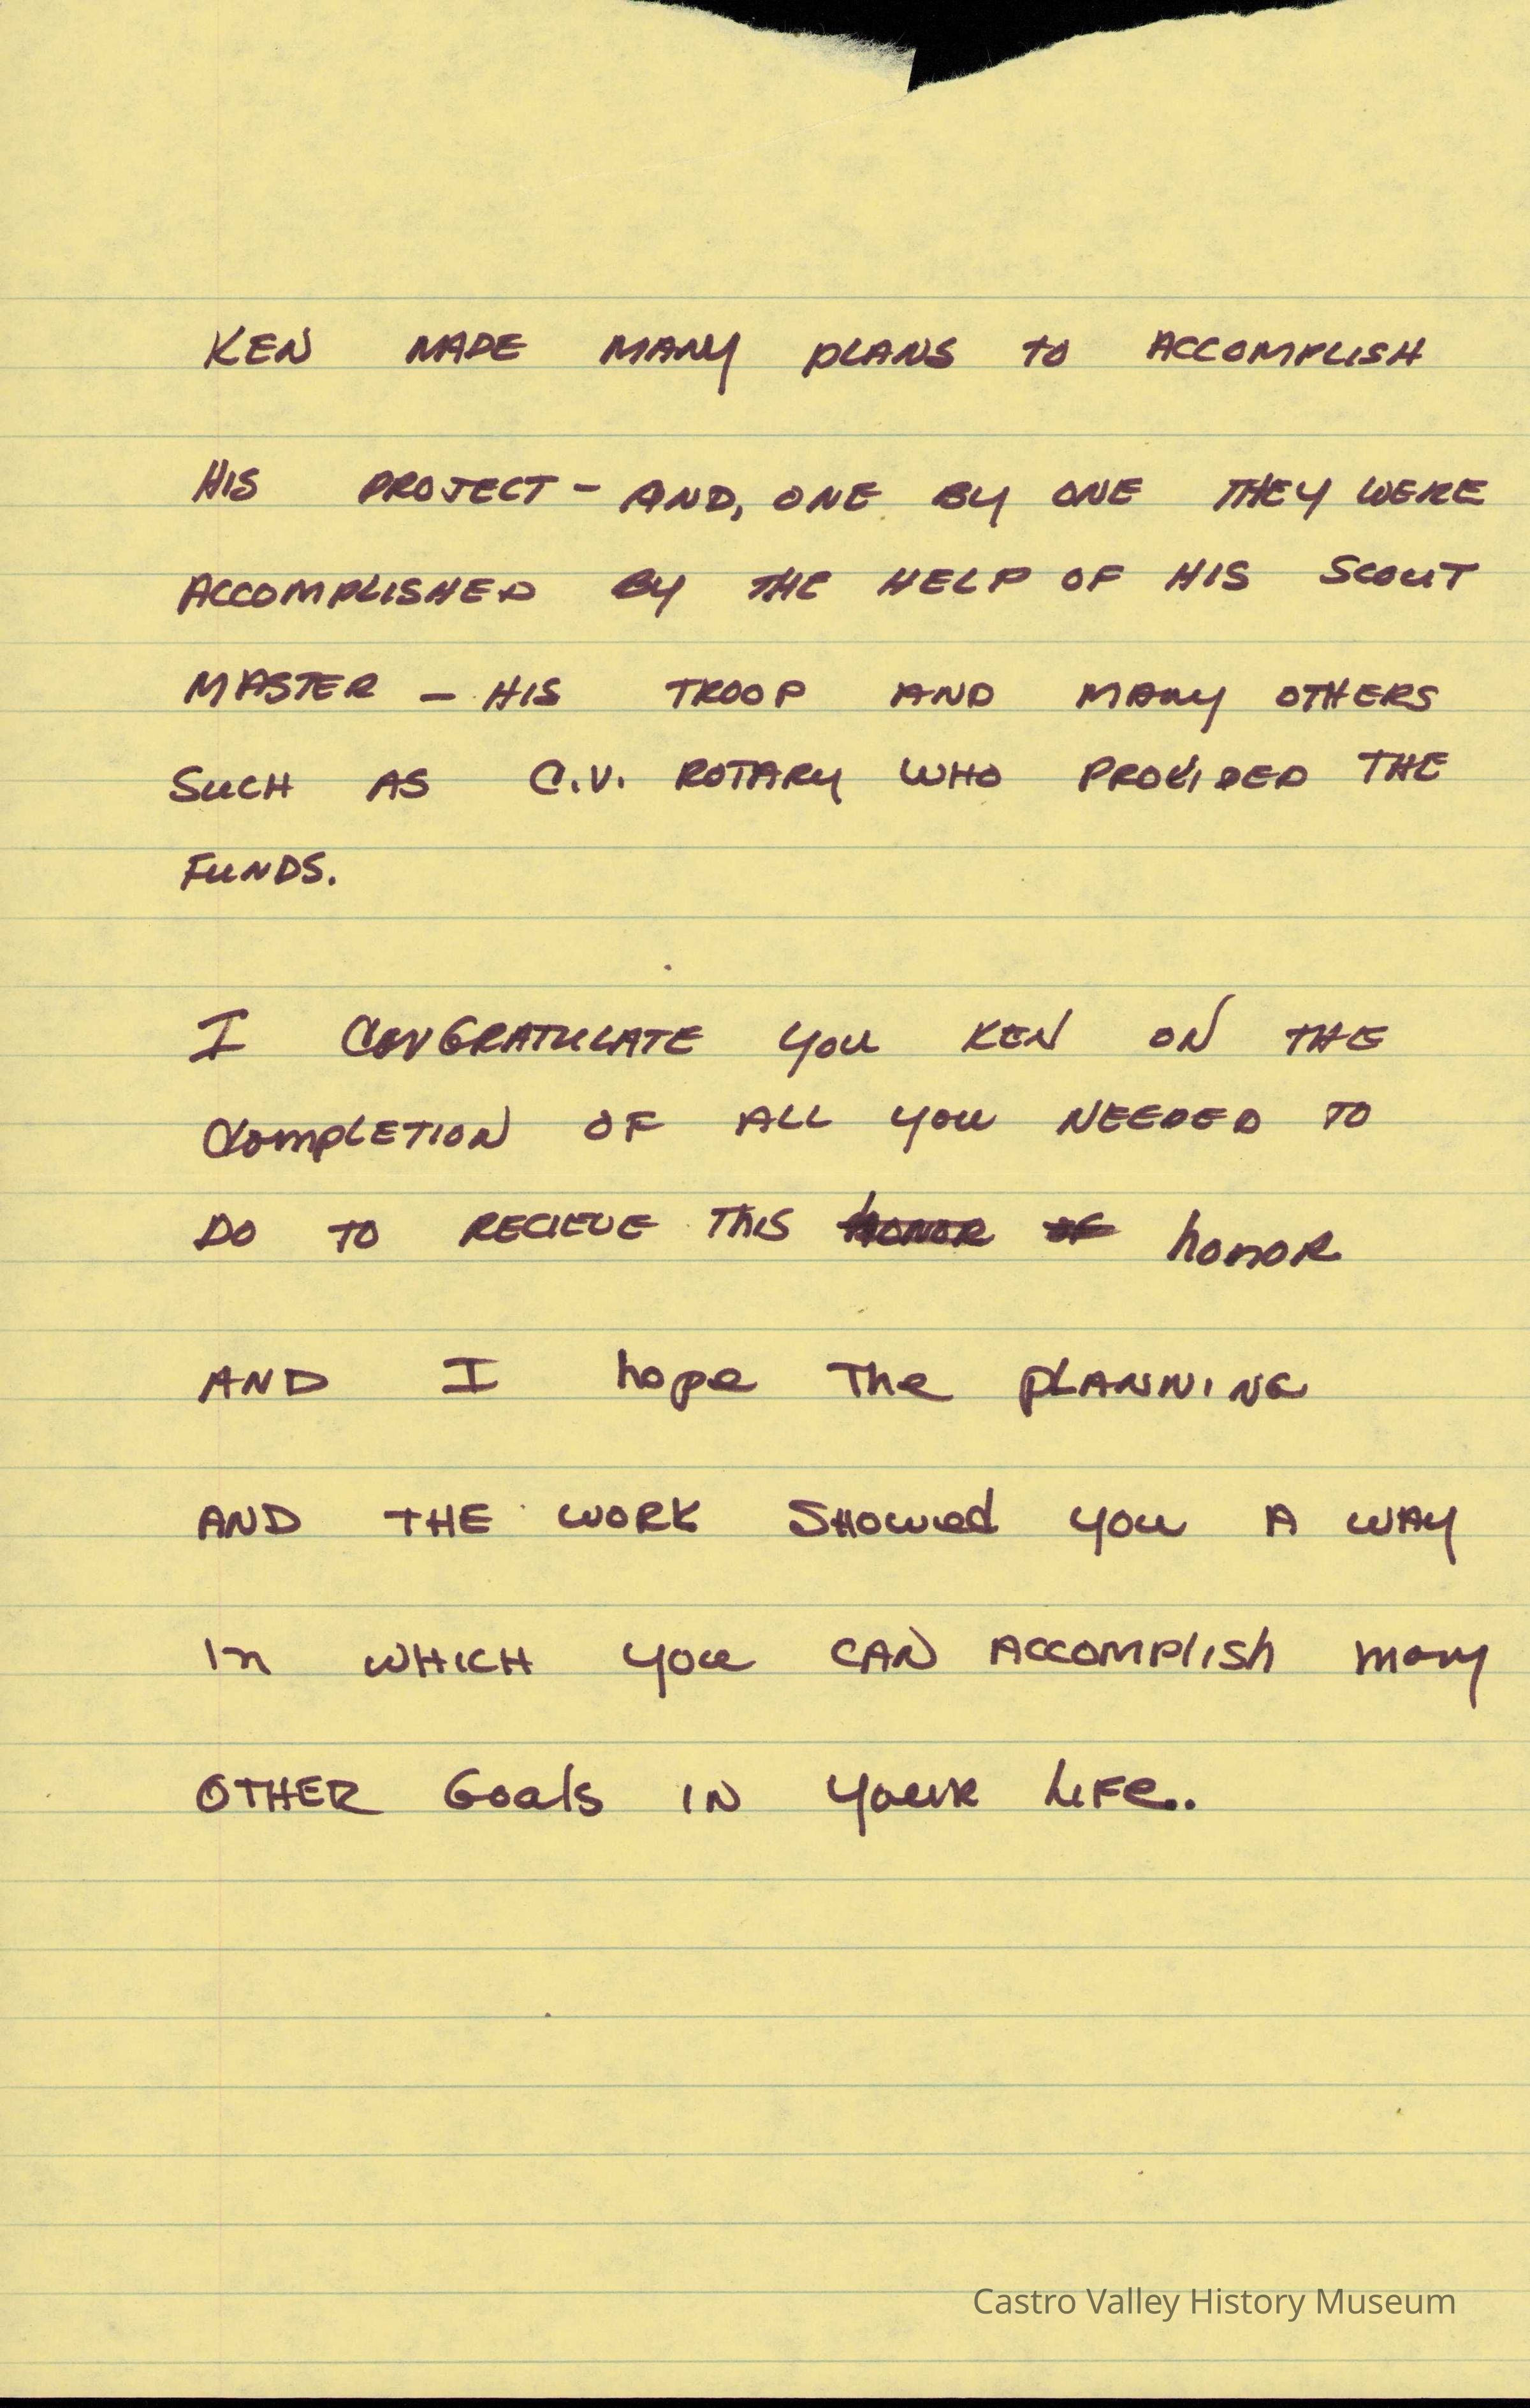 KEN MADE MANY PLANS TO ACCOMPLISH
HIS PROJECT - AND, ONE BY ONE THEY WERE
ACCOMPLISHED BY THE HELP OF HIS SCOUT
MASTER - HIS TROOP AND MANY OTHERS
SUCH AS C.V. ROTARY WHO PROVIDED THE
FUNDS.
I CONGRATULATE YOU KEN ON THE
COMPLETION OF ALL YOU NEEDED TO
DO TO RECIEVE THIS honor of honor
AND I hope The PLANNING
AND THE WORK SHOWed YOU A WAY
In WHICH YOU CAN ACCOMPlISh many
OTHER Goals IN YOUR LIFe..
Castro Valley History Museum